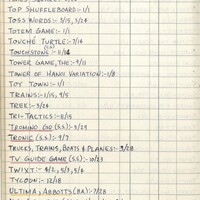 TOP SHUFFLEBOARD:-1/1
TOSS WORDS:-3/15, 5/24
TOTEM GAME:-1/1
TOUCHÉ TURTLE:-7/14
TOUCHSTONE:-1/12
TOWER GAME, THE:-9/11
TOWER OF HANOI VARIATION:-1/8
TOY TOWN:-1/1
TRAINS:-1/15, 9/5
TREK:-3/24
TRI-TACTICS:-8/15
TROMINO GO (S.S):-9/29
TRONIC (S.S):-9/7
TRUCKS, TRAINS, BOATS & PLANES:-9/28
TV GUIDE GAME (S.S):-10/23
TWIXT:-4/2, 5/3, 5/4
TYCOON:-12/18
ULTIMA, ABBOTT'S (BA):-7/28